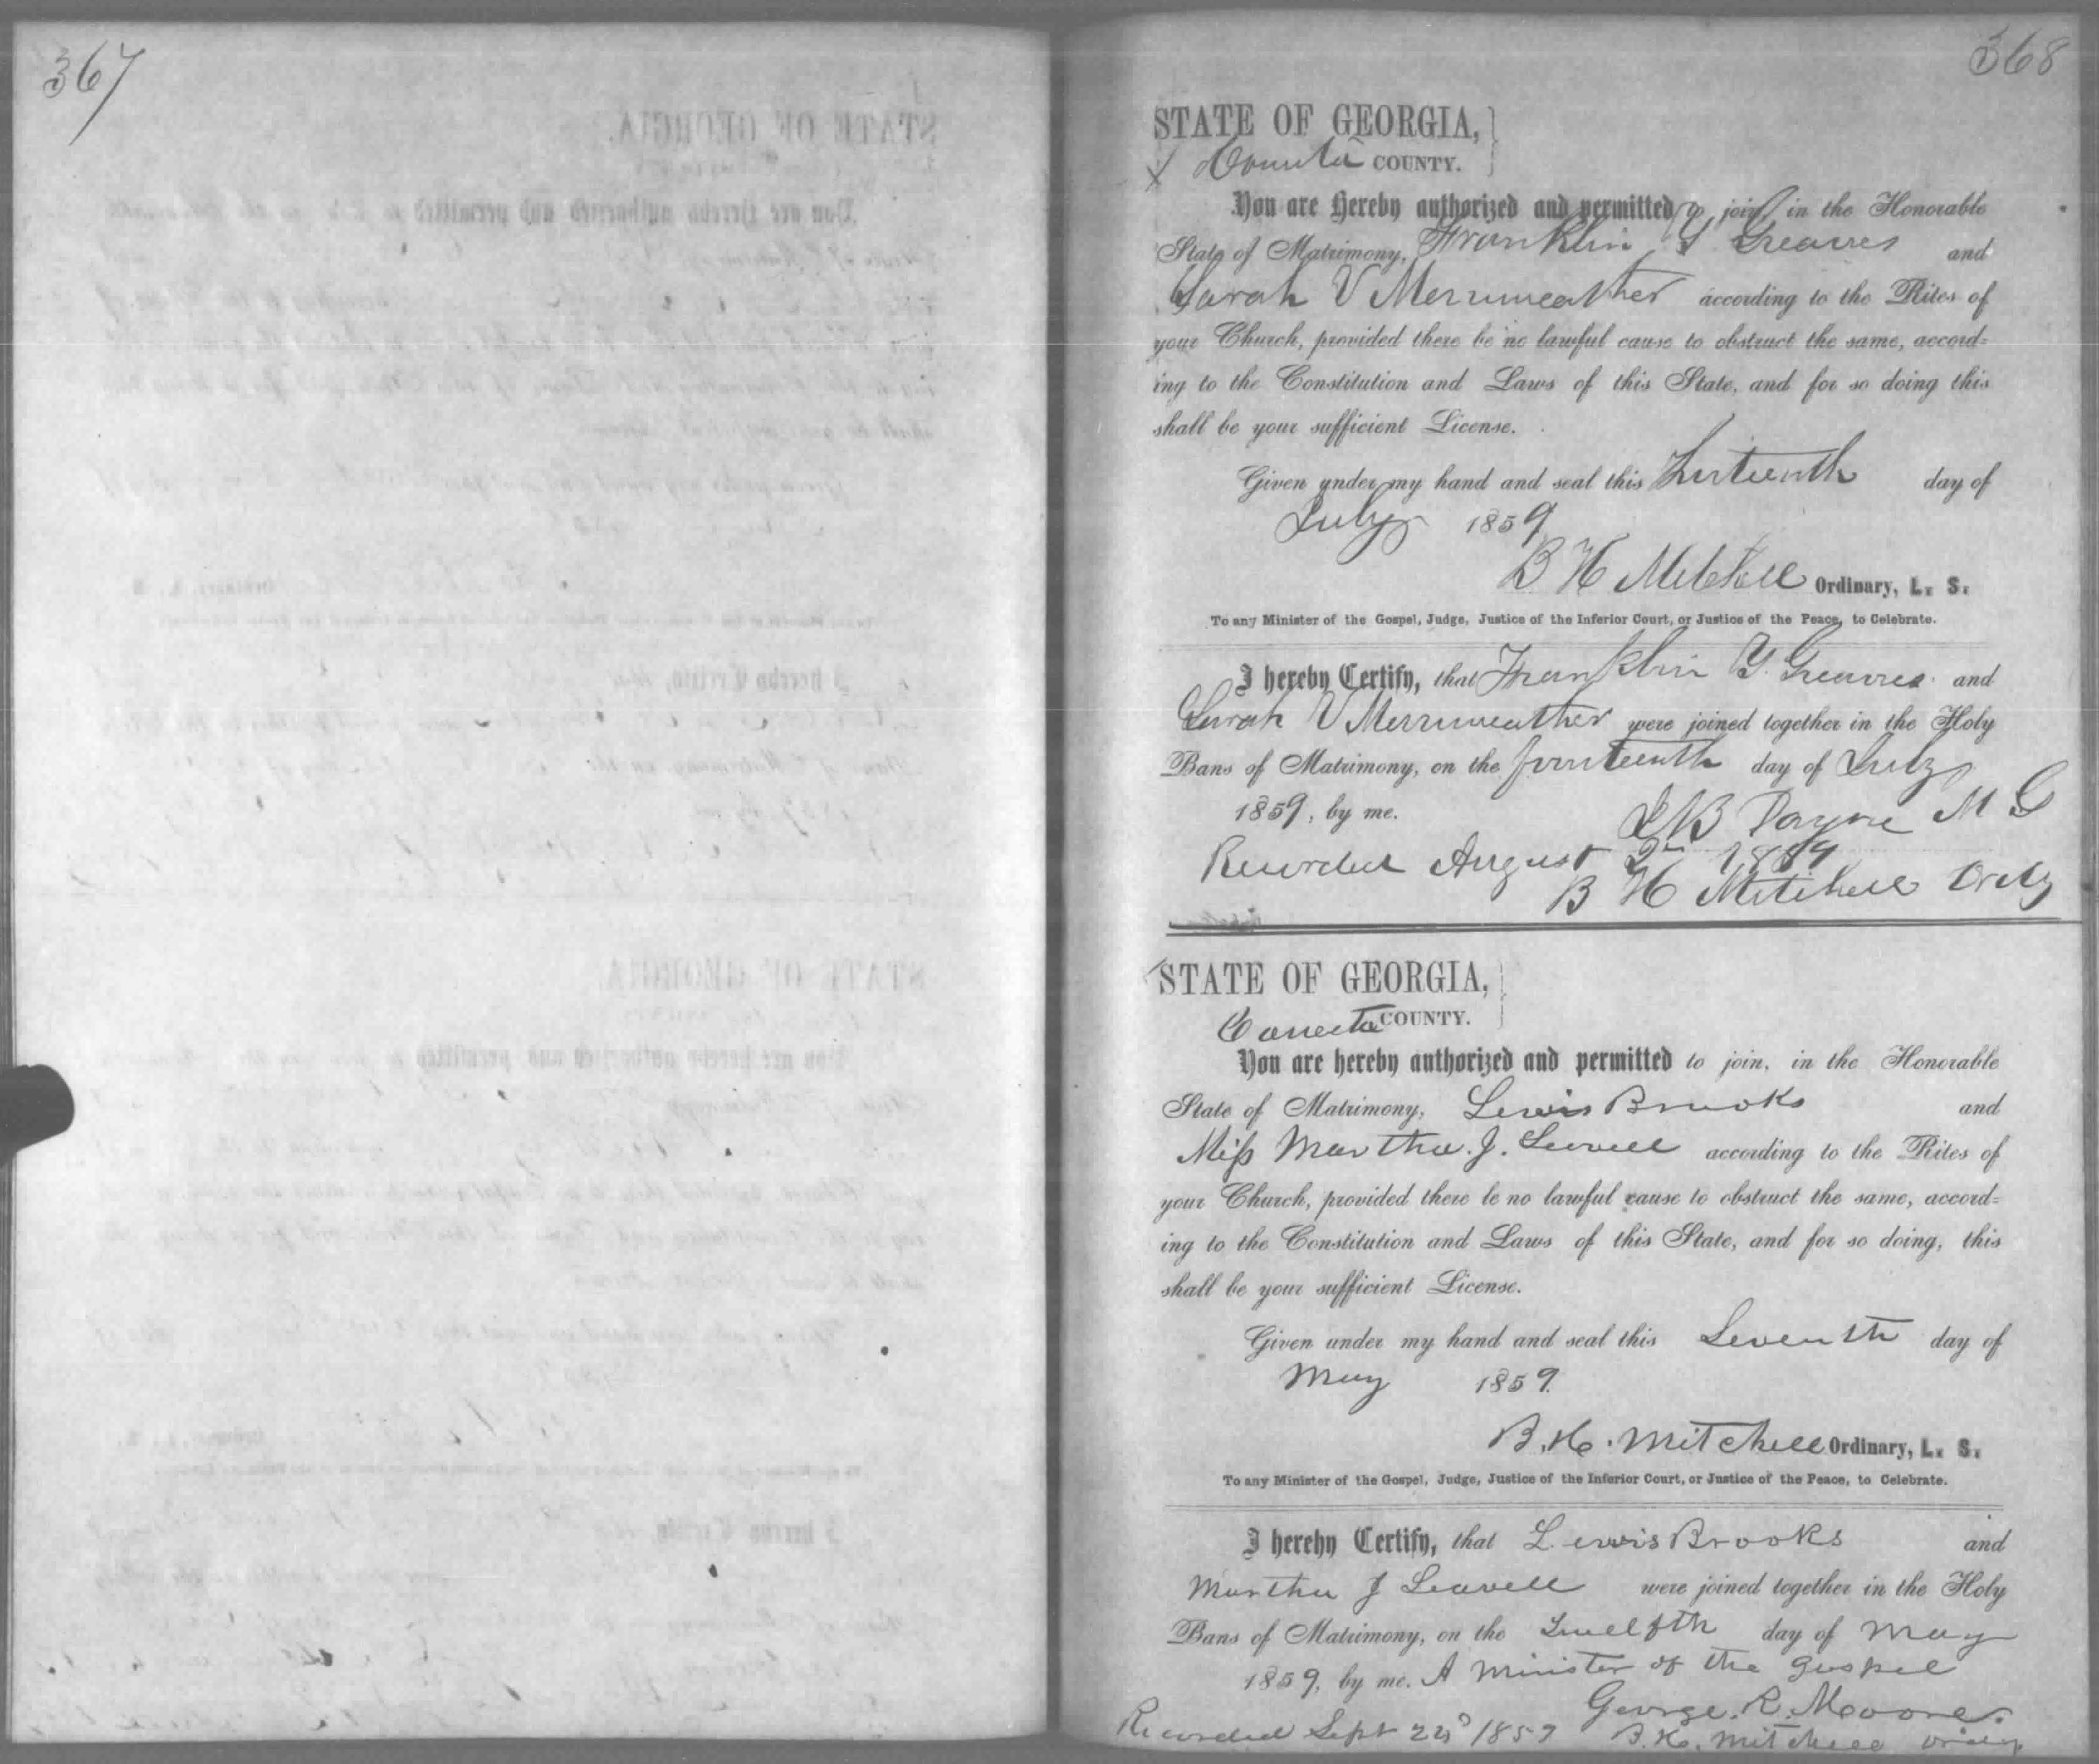 367
368
STATE OF GEORGIA,
Coweta COUNTY.
You are Hereby authorized and permitted to join in the Honorable
State of Matrimony, Franklin Y Greaves and
Sarah V Merriweather according to the Rites of
your Church, provided there be no lawful cause to obstruct the same, accord=
ing to the Constitution and Laws of this State, and for so doing this
shall be your sufficient License.
Given under my hand and seal this day of
July 1859
B H Mitchell Ordinary, L. S.
To any Minister of the Gospel, Judge, Justice of the Inferior Court, or Justice of the Peace, to Celebrate.
I hereby Certify, that Franklin Y. Greaves and
Sarah V Merriweather were joined together in the Holy
Bans of Matrimony, on the fourteenth day of July
1859, by me. Payne M G
Recorded August 2nd 1859
B H Mitchell Ordy
STATE OF GEORGIA,
Coweta COUNTY.
You are hereby authorized and permitted to join, in the Honorable
State of Matrimony, Lewis Brooks and
Miss Martha. J. Leavell according to the Rites of
your Church, provided there be no lawful cause to obstruct the same, accord=
ing to the Constitution and Laws of this State, and for so doing, this
shall be your sufficient License.
Given under my hand and seal this Seventh day of
May 1859.
B. H. Mitchell Ordinary, L. S.
To any Minister of the Gospel, Judge, Justice of the Inferior Court, or Justice of the Peace, to Celebrate.
I hereby Certify, that Lewis Brooks and
Martha J Leavell were joined together in the Holy
Bans of Matrimony, on the Twelfth day of May
1859, by me. A Minister of the Gospel
George. R. Moore.
Recorded Sept 1859 B. H. Mitchell Ordy